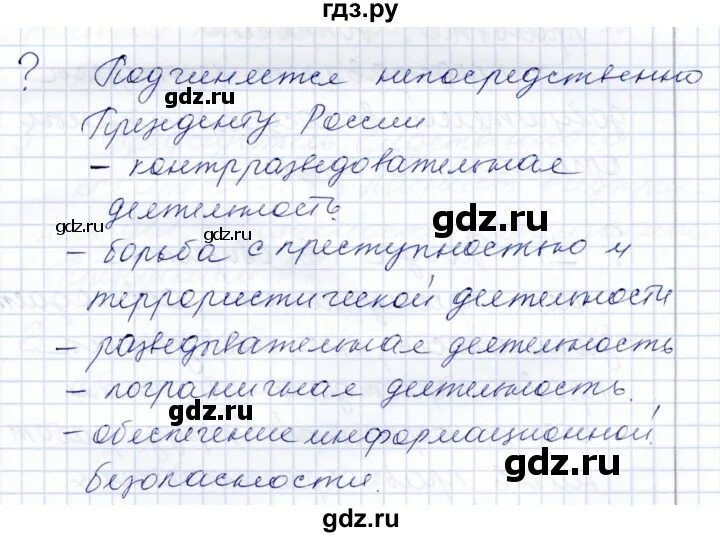 гдз.ру
? Подчиняется непосредственно
gdz.ru
Президенту России
– контрразведовательная
деятельность.
gdz.ru
gdz.ru
gdz.ru
– борьба с преступностью и
террористической деятельности
– разведывательная деятельность
– пограничная деятельность.
gdz.ru
gdz.ru
– обеспечение информационной
безопасности.
gdz.ru
gdz.ru